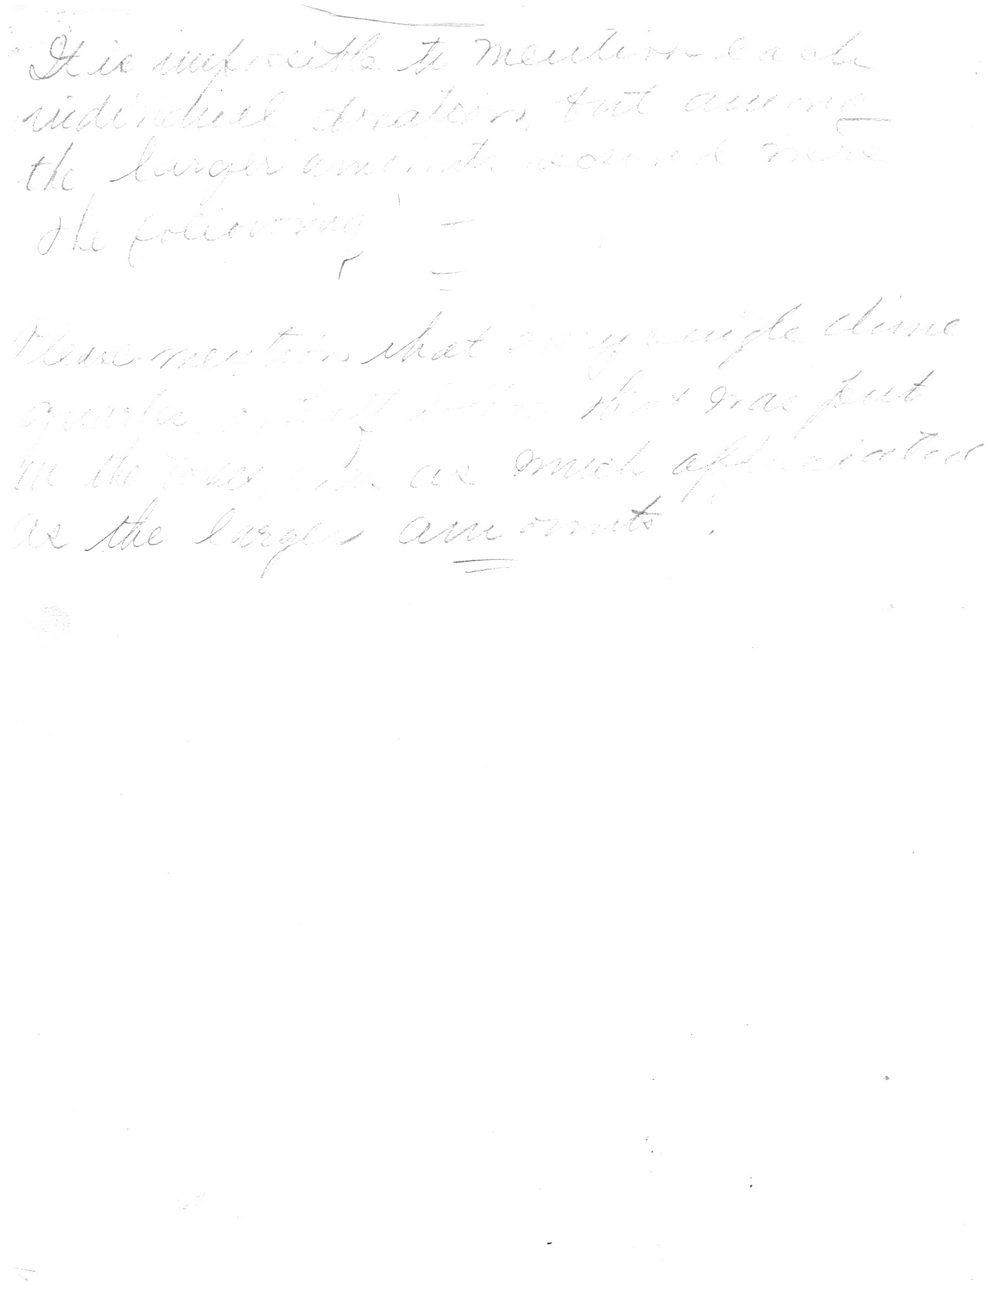 It is impossible to mention each
individual donation, but among
the larger amounts received were
the following! —
Please mention that every single dime
quarter and half dollar that was put
in the was as much appreciated
as the larger amounts.